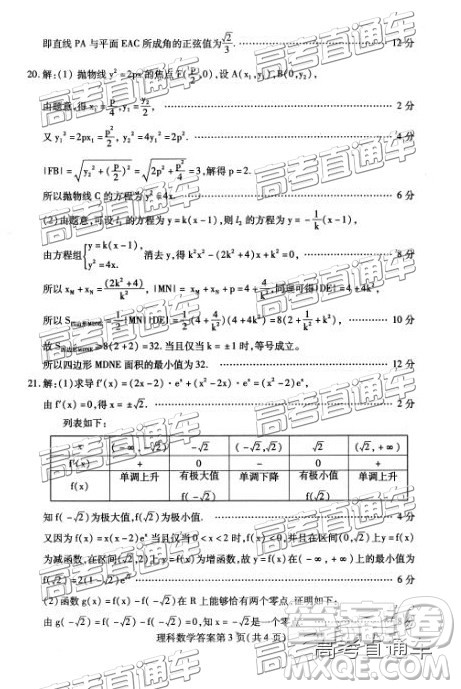 即直线 PA 与平面 EAC 所成角的正弦值为√2/3. …… 12 分
20.解:(1) 抛物线 y²=2px 的焦点 F(p/2,0),设 A(x₁,y₁),B(0,y₂),
由题意,得 x₁=p/4,y₁=y₂/2, …… 2 分
又 y₁²=2px₁=p²/2,y₂²=4y₁²=2p². …… 4 分
|FB|=√(y₂²+(p/2)²)=√(2p²+p²/4)=3,解得 p=2.
所以抛物线 C 的方程为 y²=4x. …… 6 分
(2)由题意,可设 l₁ 的方程为 y=k(x-1),则 l₂ 的方程为 y=-1/k(x-1),
由方程组{y=k(x-1), y²=4x. 消去 y,得 k²x²-(2k²+4)x+k²=0, …… 8 分
所以 x_M+x_N=(2k²+4)/k²,|MN|=x_M+x_N+p=4+4/k²,同理可得|DE|=4+4k²,
所以 S四边形MDNE=1/2|MN|·|DE|=1/2(4+4/k²)(4+4k²)=8(2+1/k²+k²), …… 10 分
故 S四边形MDNE≥8(2+2)=32. 当且仅当 k=±1 时,等号成立.
所以四边形 MDNE 面积的最小值为 32. …… 12 分
21.解:(1)求导 f'(x)=(2x-2)·eˣ+(x²-2x)·eˣ=(x²-2)eˣ,
由 f'(x)=0,得 x=±√2. …… 2 分
列表如下:
x (-∞,-√2) -√2 (-√2,√2) √2 (√2,+∞)
f'(x) + 0 - 0 +
f(x) 单调上升 有极大值 f(-√2) 单调下降 有极小值 f(√2) 单调上升
知 f(-√2)为极大值,f(√2)为极小值. …… 4 分
又因为 f(x)=x(x-2)eˣ 当且仅当 0<x<2 时,f(x)<0,并且
为减函数,在(√2,+∞)f(x)为增函数,故 f(x)在(-∞,+∞)上的最小值为
f(√2)=2(1-√2)e^√2 …… 6 分
(2)函数 g(x)=f(x)-f(-√2)在 R 上能够恰有两个零点.证明如下:
由 g(-√2)=f(-√2)-f(-√2)=0,知 x=-√2 是一个零点
理科数学答案第 3 页(共 4 页)
高考直通车
答案圈
MXQE.COM